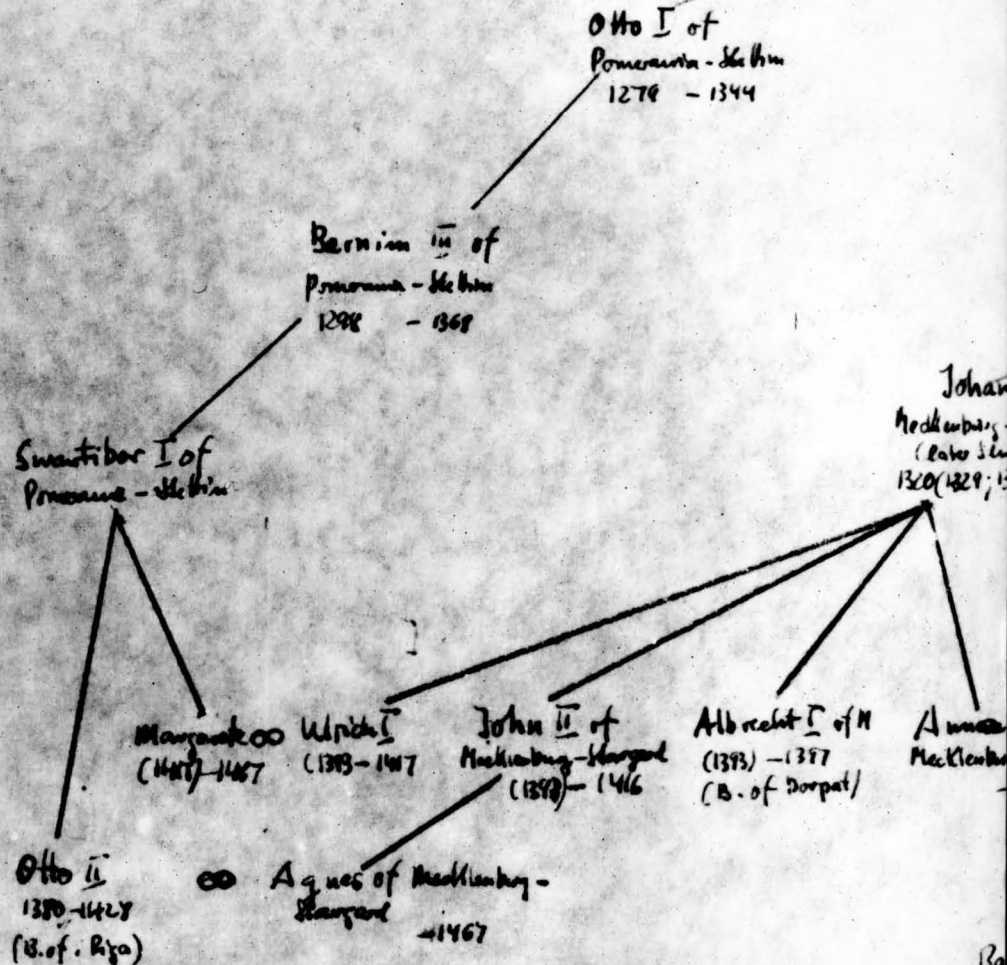 Otto I of
Pomerania - Stettin
1279 - 1344
Barnim III of
Pomerania - Stettin
1298 - 1368
Johan
Mecklenburg -
(later
1320 (1329; 13
Swantibor I of
Pomerania - Stettin
Margarete ∞ Ulrich I
- 1467
(1393 - 1417
John II of
Mecklenburg - Stargard
(1393) - 1416
Albrecht I of M
(1393) - 1397
(B. of Dorpat)
Anna
Mecklenbur
Otto II
1380 - 1428
(B. of. Riga)
∞ Agnes of Mecklenburg -
Stargard
- 1467